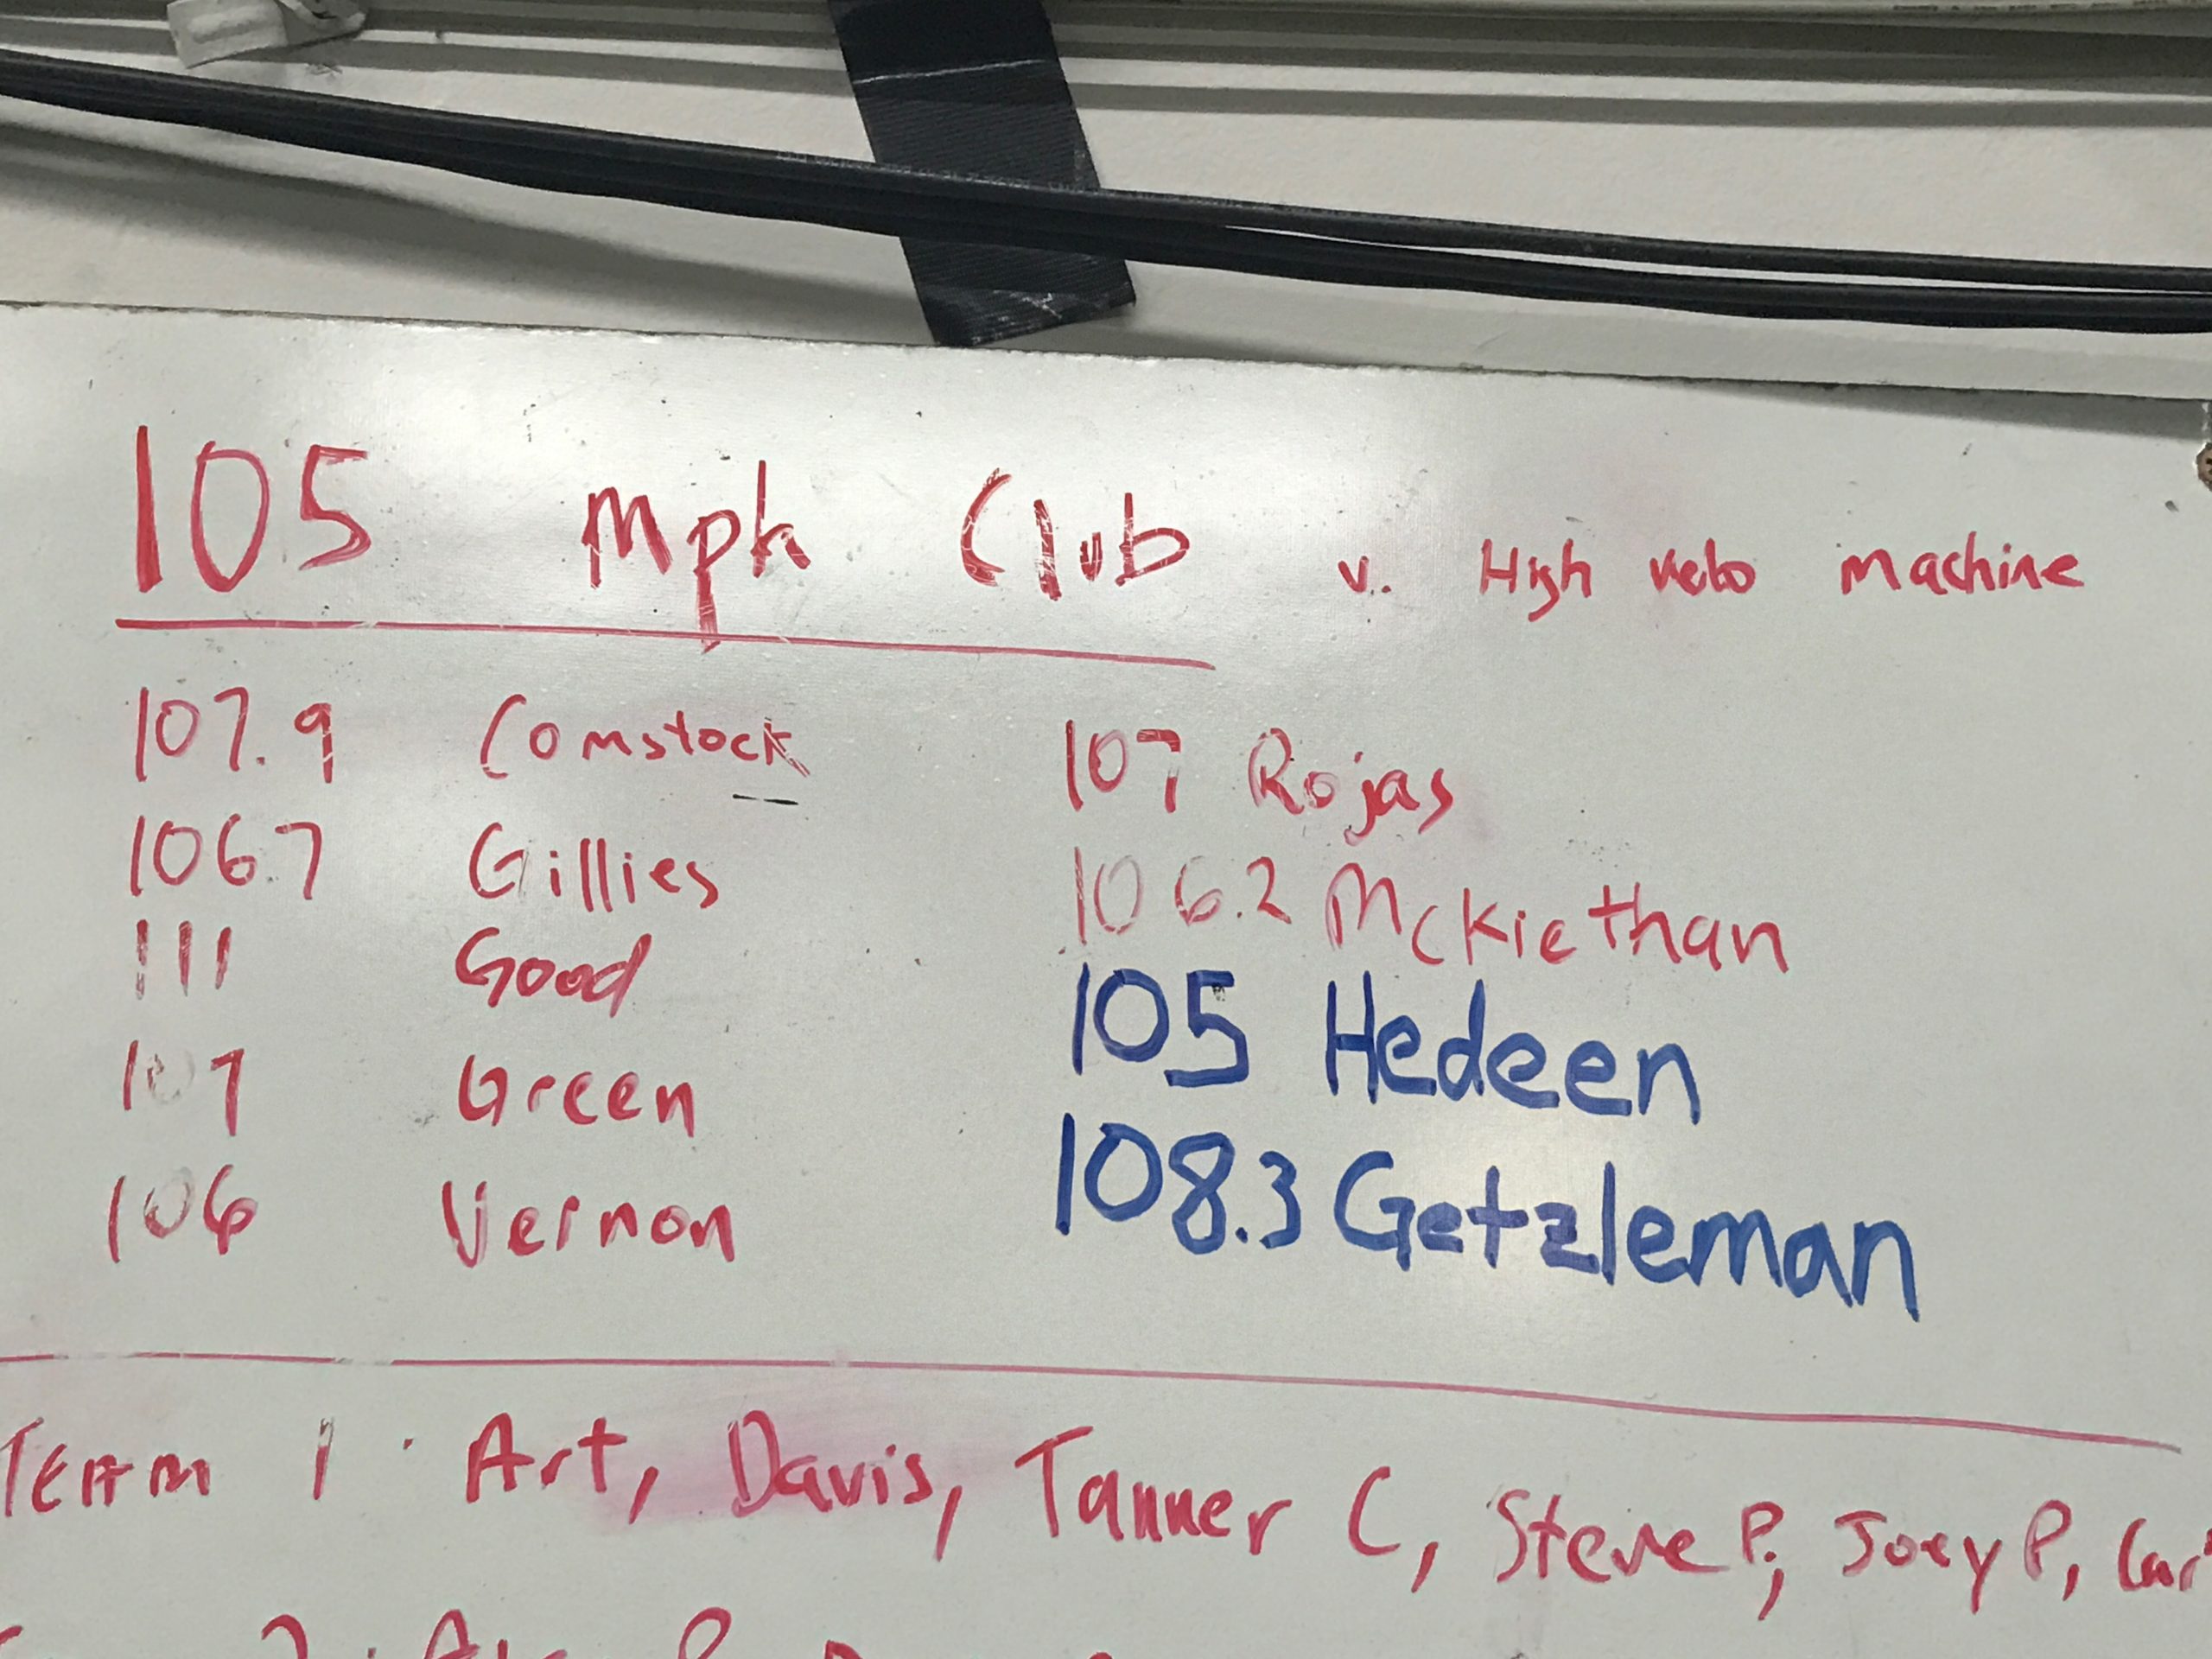 105 Mph Club v. High velo machine
107.9 Comstock
106.7 Gillies
111 Good
107 Green
106 Vernon
107 Rojas
106.2 McKiethan
105 Hedeen
108.3 Getzleman
TEAM 1: Art, Davis, Tanner C, Steve P, Joey P,